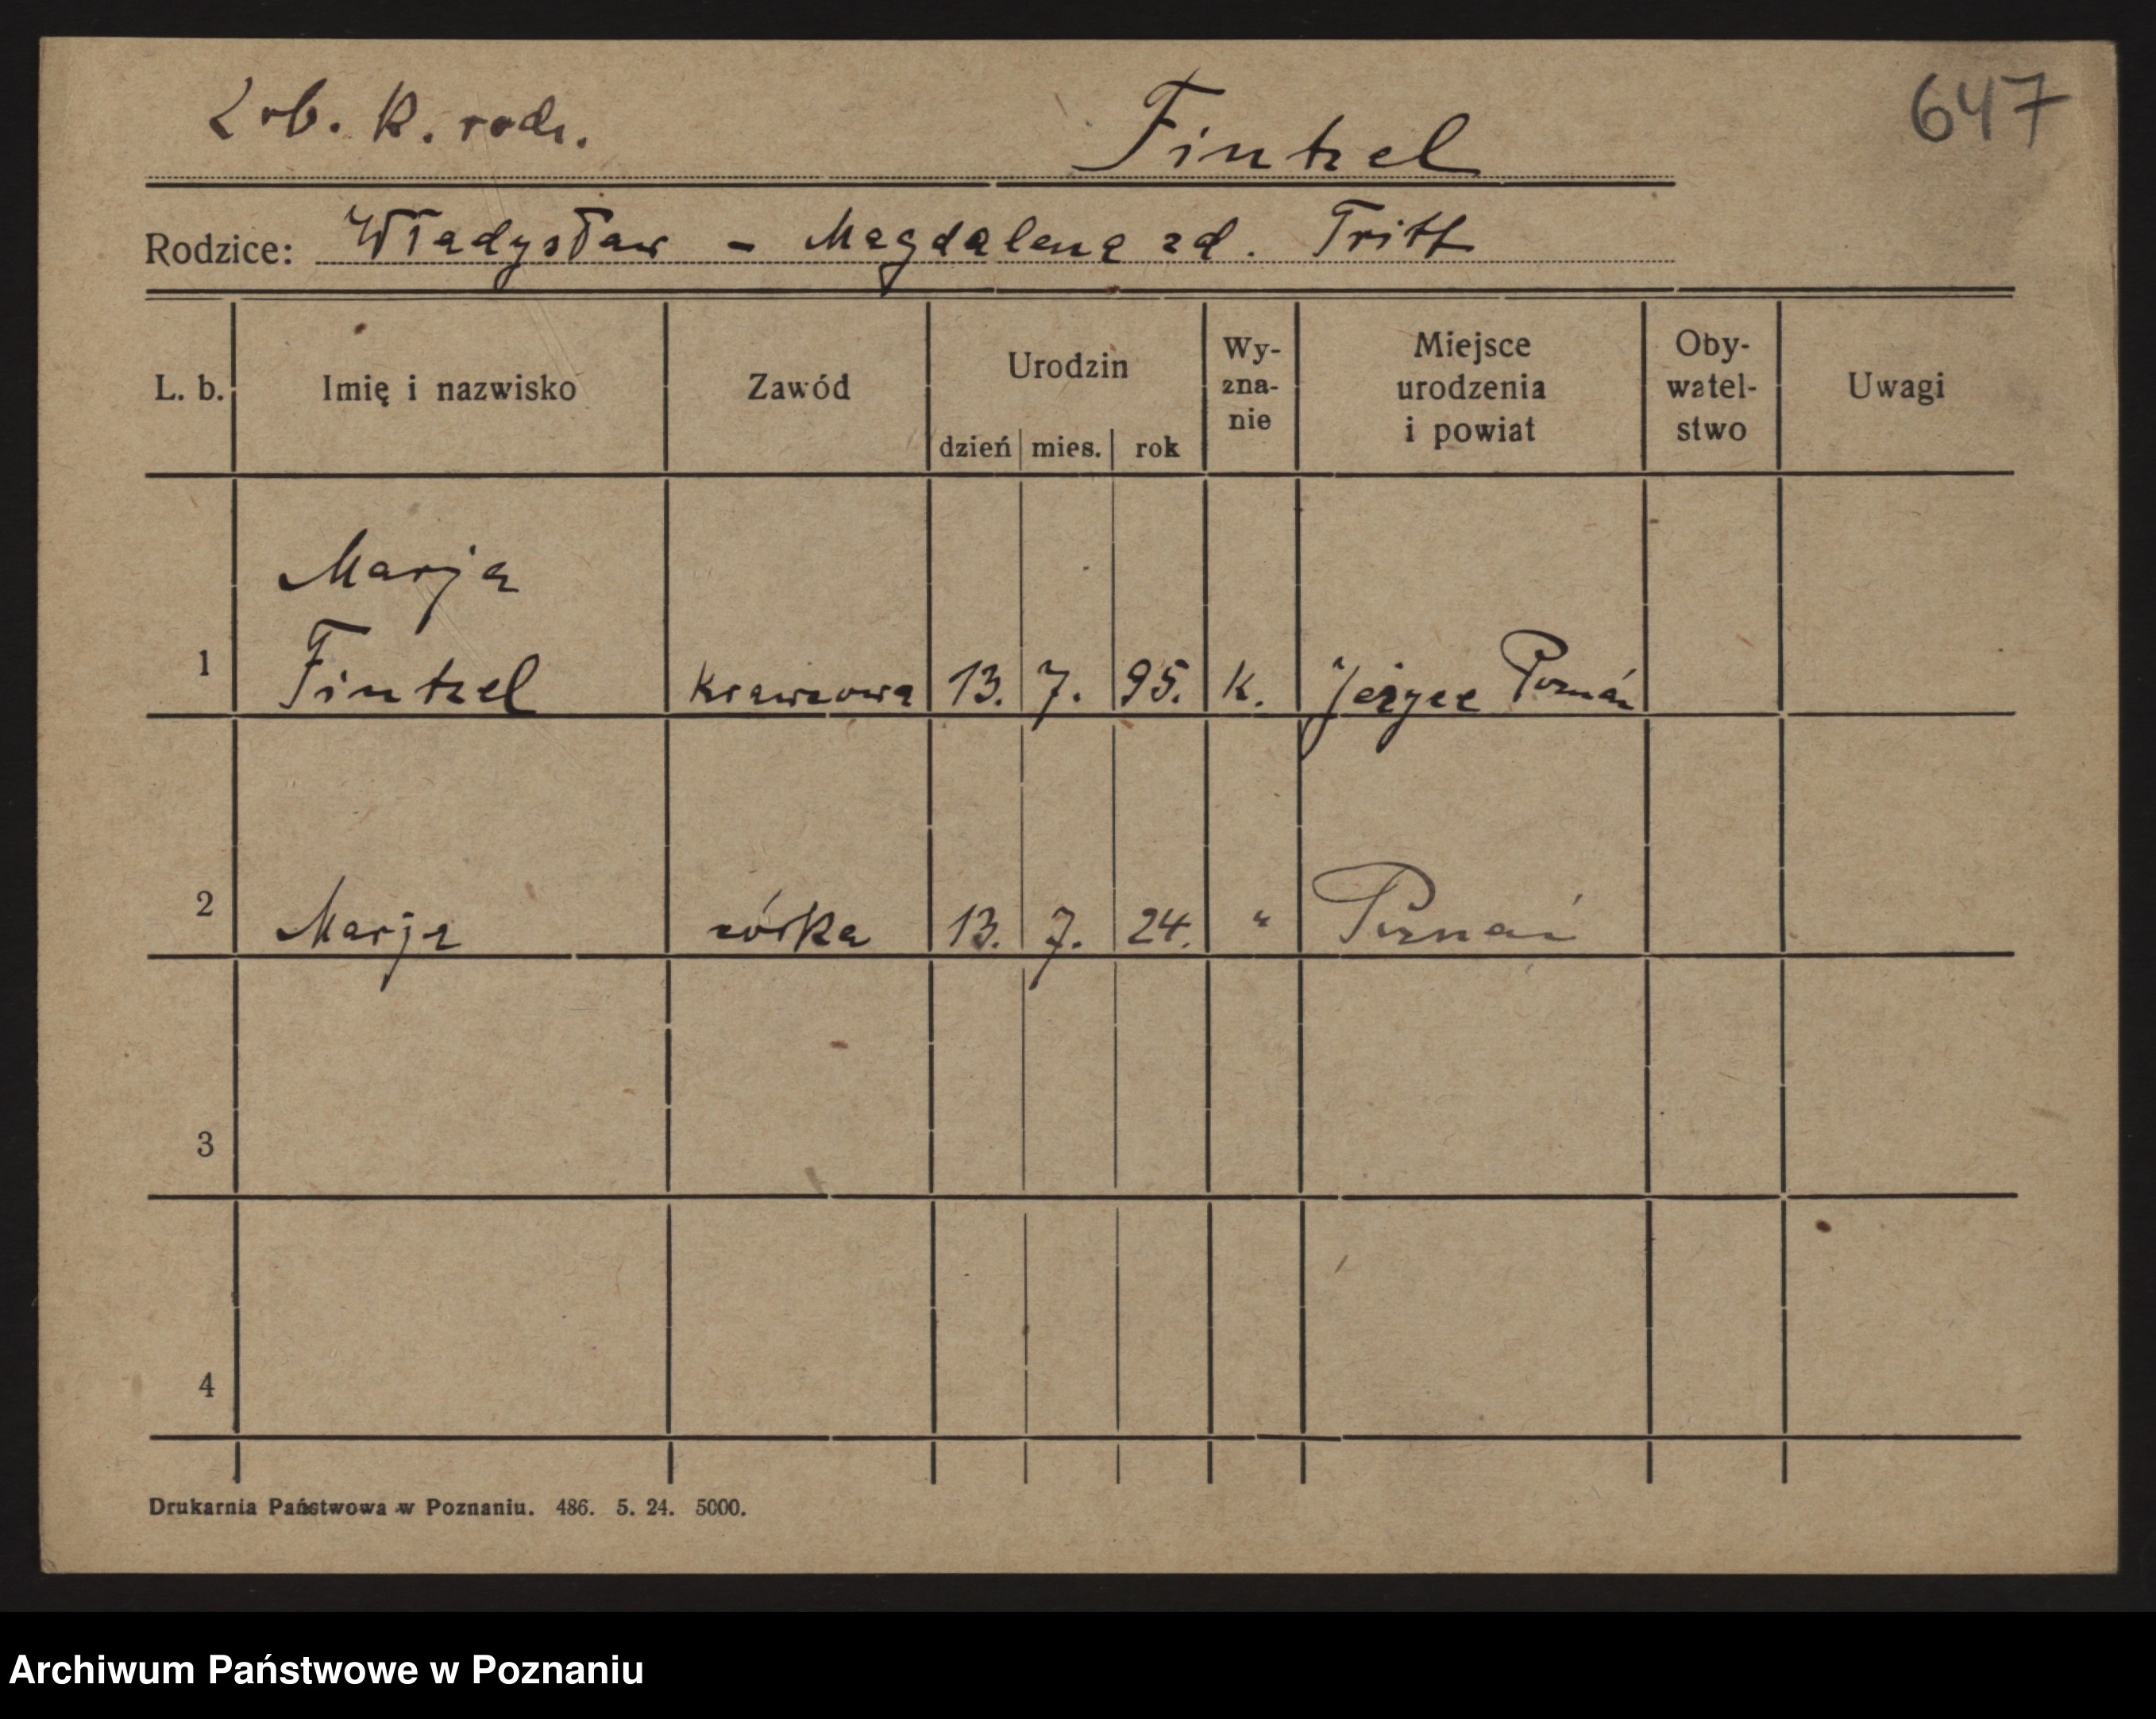 Zob. K. rodz.
Fintzel
647
Rodzice: Władysław - Magdalena zd. Tritt
L. b. Imię i nazwisko Zawód Urodzin dzień mies. rok Wy-zna-nie Miejsce urodzenia i powiat Oby-watel-stwo Uwagi
Marja
1 Fintzel krawcowa 13. 7. 95. K. Jeżyce Poznań
2 Marja córka 13. 7. 24. " Poznań
3
4
Drukarnia Państwowa w Poznaniu. 486. 5. 24. 5000.
Archiwum Państwowe w Poznaniu